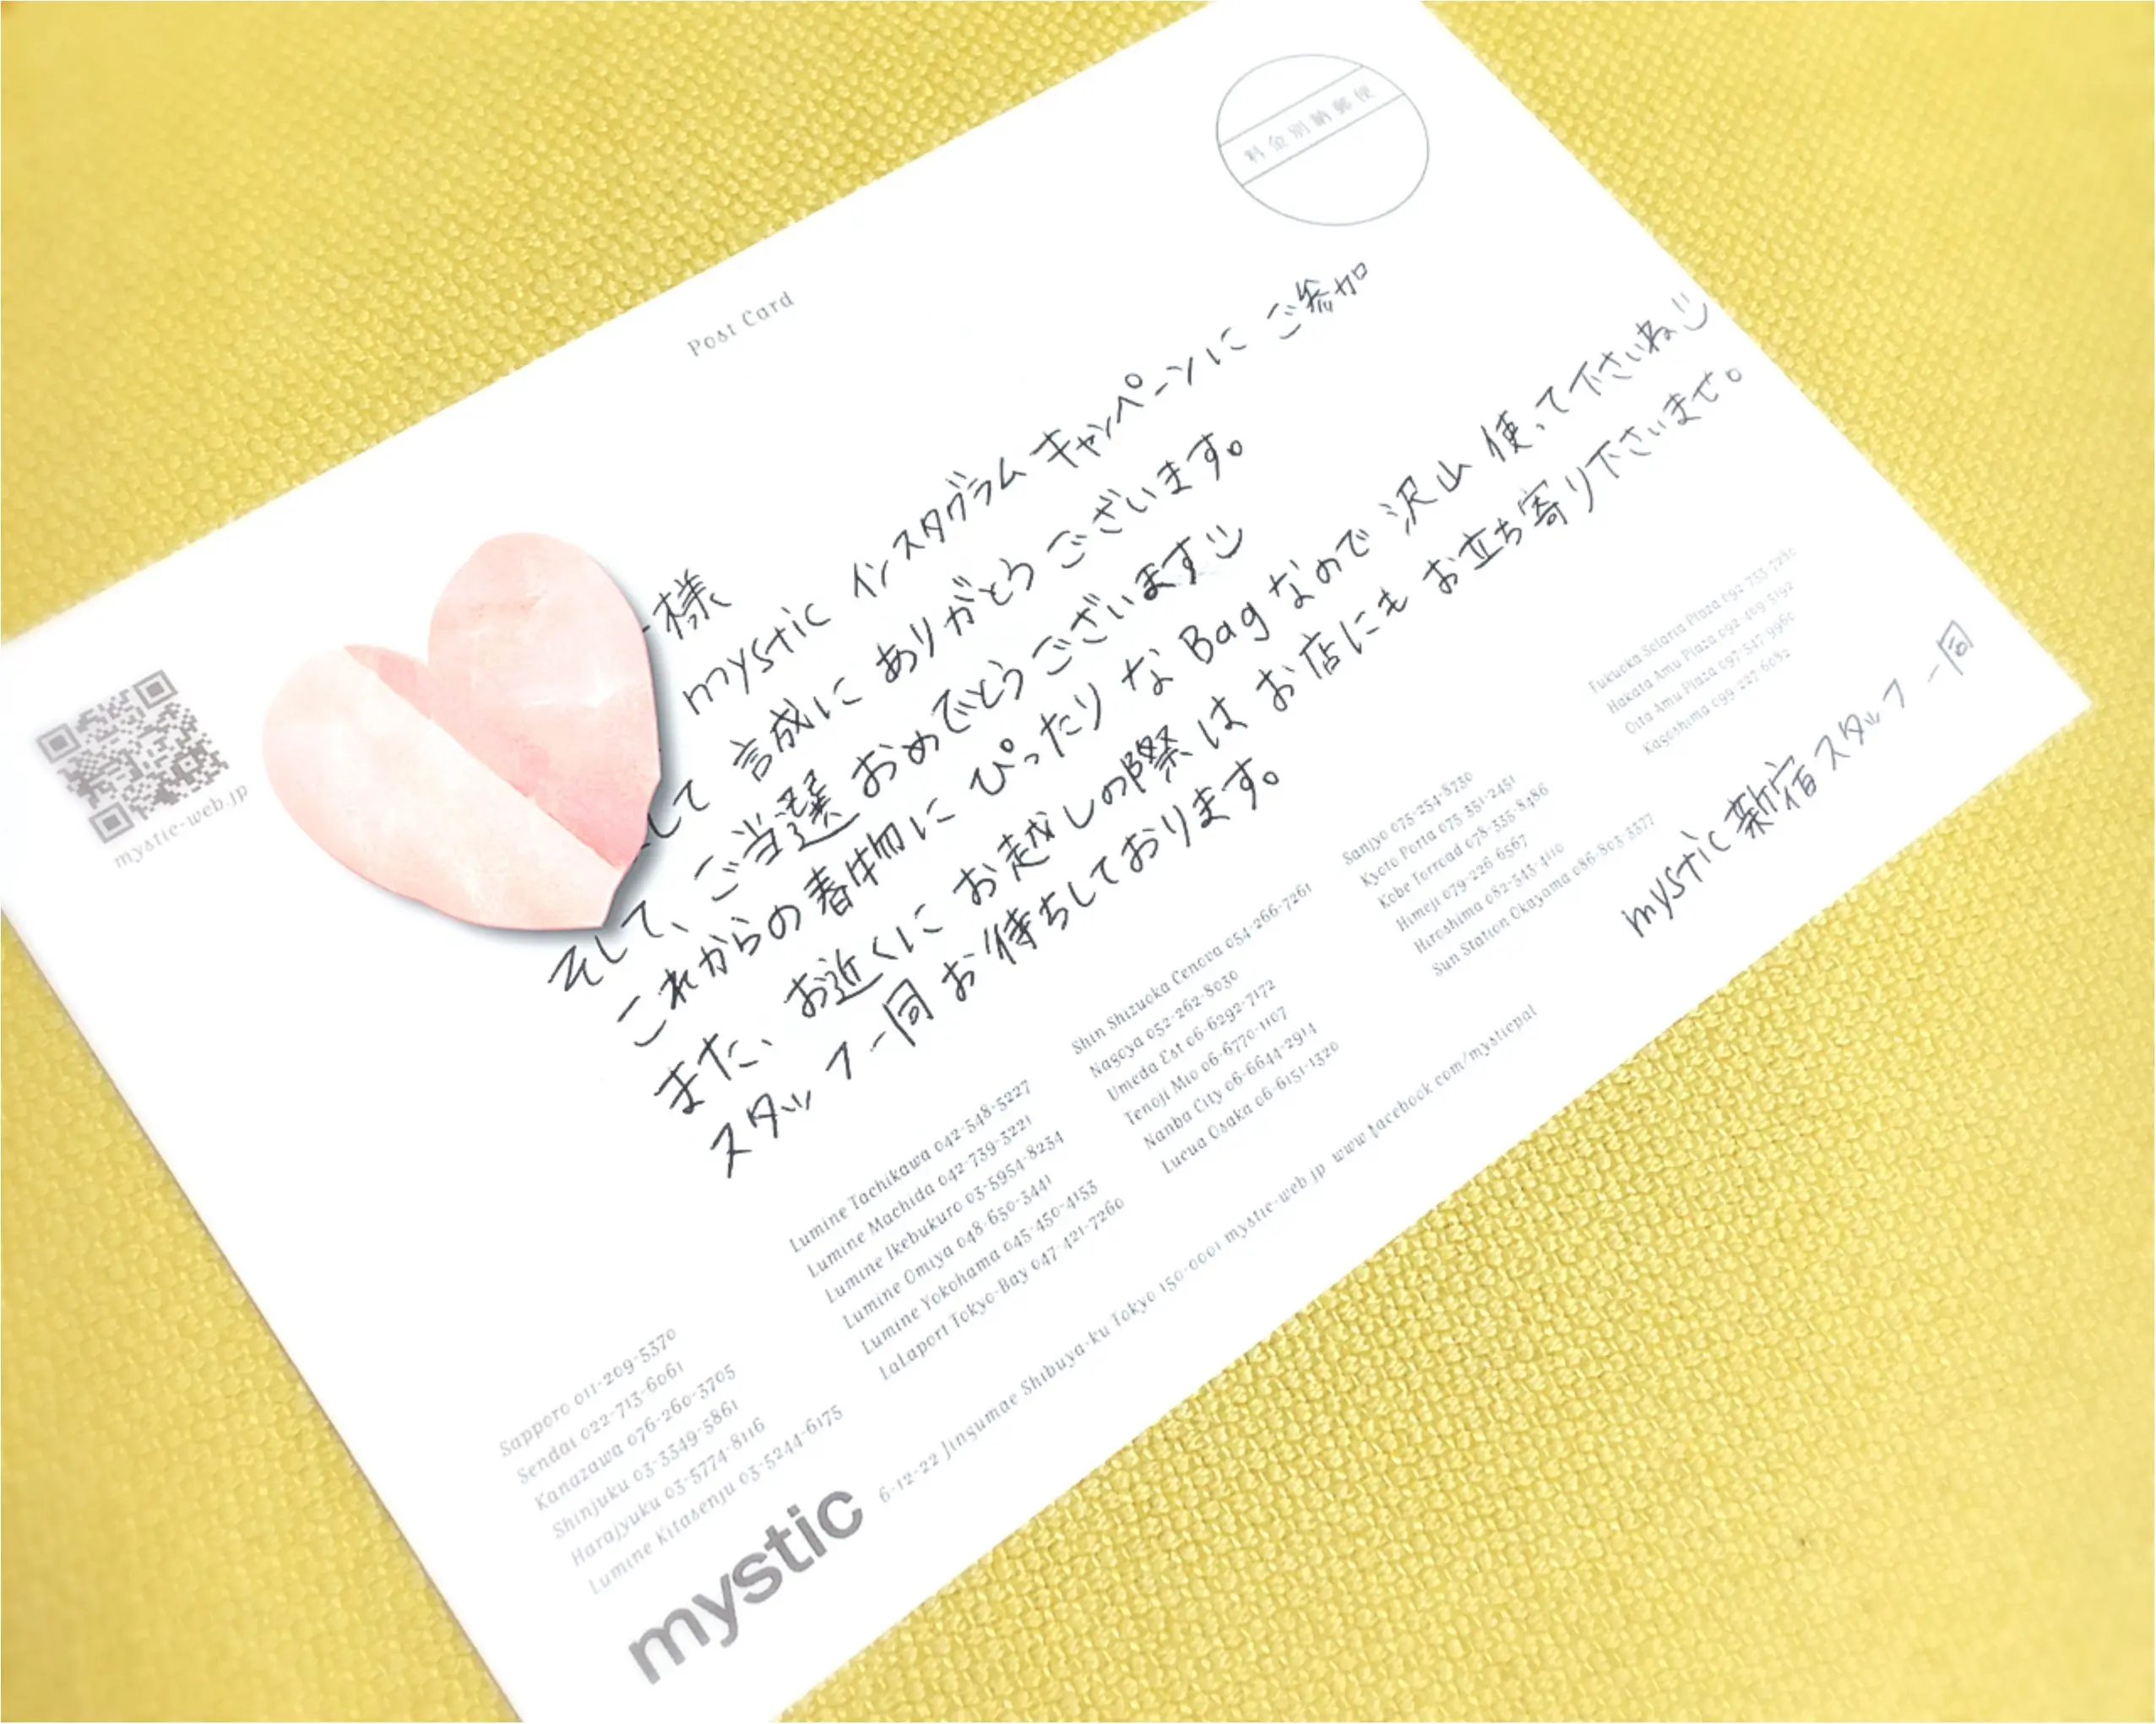 料金別納郵便
Post Card
mystic-web.jp
様
mystic インスタグラム キャンペーンに ご参加
して 誠に ありがとう ございます。
そして、ご当選 おめでとうございます
これからの春物に ぴったり な Bag なので 沢山 使って下さいね
また、お近くに お越しの際は お店にも お立ち寄り下さいませ。
スタッフ一同 お待ちしております。
mystic 新宿スタッフ一同
Sapporo 011-209-5370
Sendai 022-713-6061
Kanazawa 076-260-3705
Shinjuku 03-3349-5861
Harajyuku 03-5774-8116
Lumine Kitasenju 03-5244-6175
Lumine Tachikawa 042-548-5227
Lumine Machida 042-739-3221
Lumine Ikebukuro 03-5954-8234
Lumine Omiya 048-650-3441
Lumine Yokohama 045-450-4153
LaLaport Tokyo-Bay 047-421-7260
Shin Shizuoka Cenova 054-266-7261
Nagoya 052-262-8030
Umeda Est 06-6292-7172
Tenoji Mio 06-6770-1107
Nanba City 06-6644-2914
Lucua Osaka 06-6151-1320
Sanjyo 075-254-8730
Kyoto Porta 075-351-2451
Kobe Torroad 078-335-8486
Himeji 079-226-6567
Hiroshima 082-543-4110
Sun Station Okayama 086-803-3377
Fukuoka Solaria Plaza 092-733-7230
Hakata Amu Plaza 092-409-5192
Oita Amu Plaza 097-547-9960
Kagoshima 099-227-6082
mystic
6-12-22 Jingumae Shibuya-ku Tokyo 150-0001 mystic-web.jp www.facebook.com/mysticpal